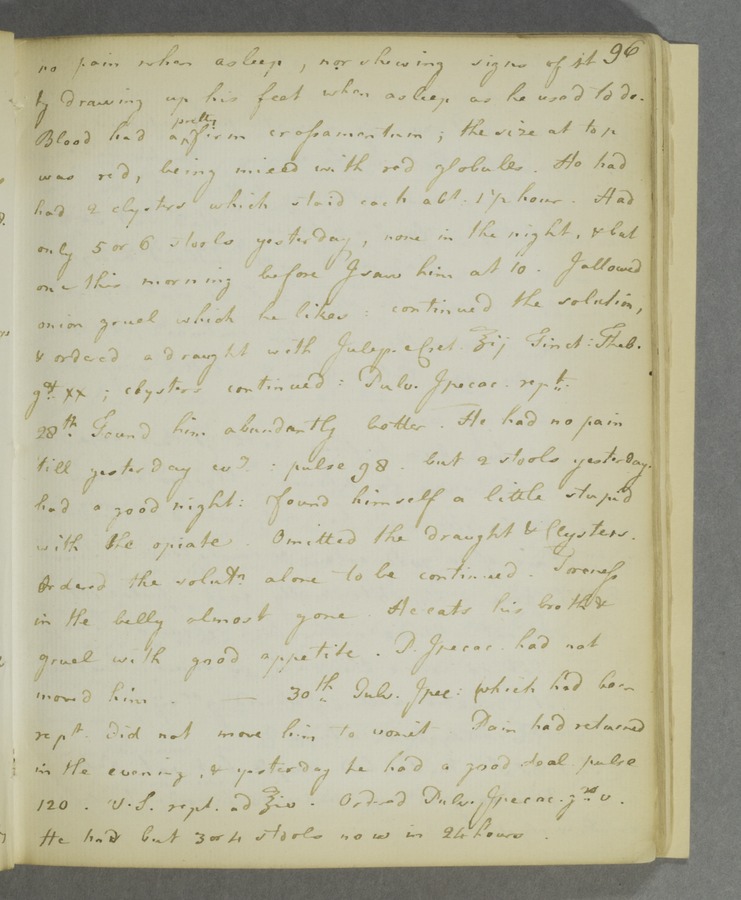 96
no pain when asleep, nor shewing signs of it
by drawing up his feet when asleep as he used to do.
Blood had a pretty firm crassamentum; the size at top
was red, being mixed with red globules. He had
had 2 clysters which staid each abt. 1 1/2 hour. Had
only 5 or 6 stools yesterday, none in the night, & but
one this morning before I saw him at 10. I allowed
onion gruel which he likes: continued the solution,
& ordered a draught with Julep. e Cret. ʒij Tinct: Theb.
gtt. xx; clysters continued: Pulv. Ipecac. rept.
28th. Found him abundantly better. He had no pain
till yesterday evg.: pulse 98. but 2 stools yesterday.
had a good night: found himself a little stupid
with the opiate. Omitted the draught & Clysters.
Ordered the solutn. alone to be continued. Soreness
in the belly almost gone. He eats his broth &
gruel with good appetite. P. Ipecac. had not
moved him. — 30th. Pulv. Ipec: which had been
rept. did not move him to vomit. Pain had returned
in the evening, & yesterday he had a good deal. pulse
120. V.S. rept. ad ℥iv. Ordered Pulv. Ipecac. grs. v.
He had but 3 or 4 stools now in 24 hours.